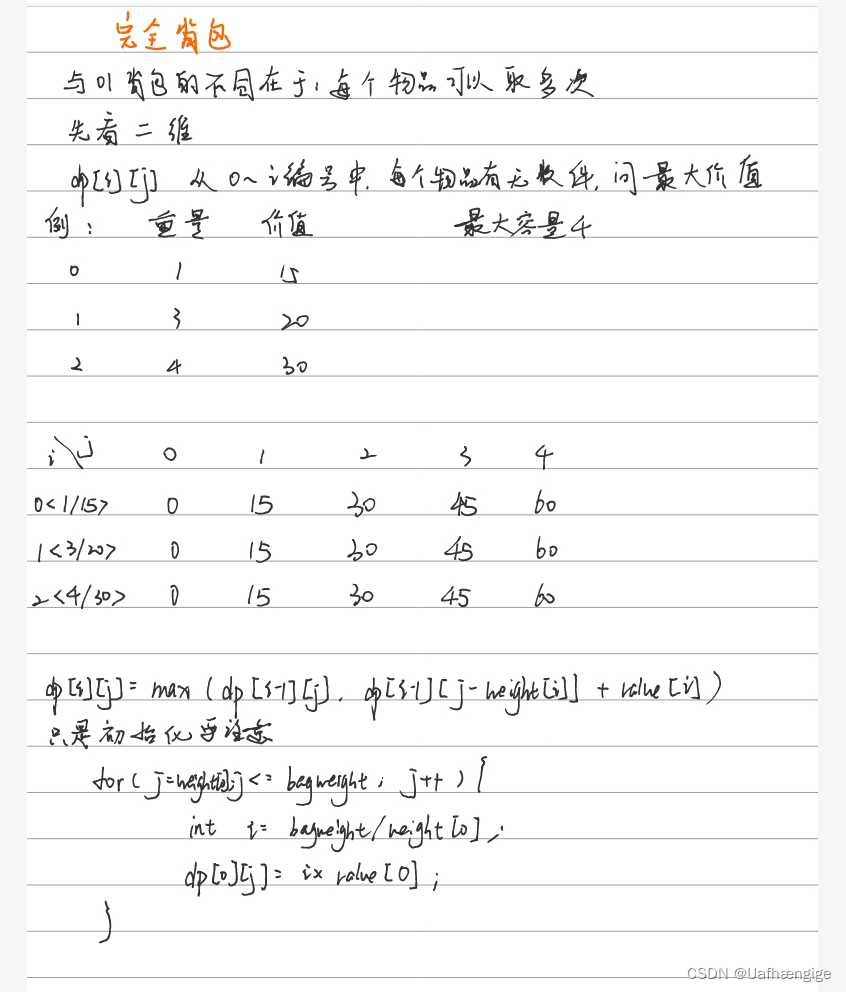 完全背包
与01背包的不同在于:每个物品可以取多次
先看二维
dp[i][j] 从0~i编号中,每个物品有无数件,问最大价值
例: 重量 价值 最大容量4
0 1 15
1 3 20
2 4 30
i\j 0 1 2 3 4
0<1/15> 0 15 30 45 60
1<3/20> 0 15 30 45 60
2<4/30> 0 15 30 45 60
dp[i][j]= max(dp[i-1][j], dp[i-1][j-weight[i]] + value[i])
只是初始化要注意
for(j=weight[0];j<= bagweight; j++){
int i= bagweight/weight[0];
dp[0][j]= i× value[0];
}
CSDN @Uafhængige